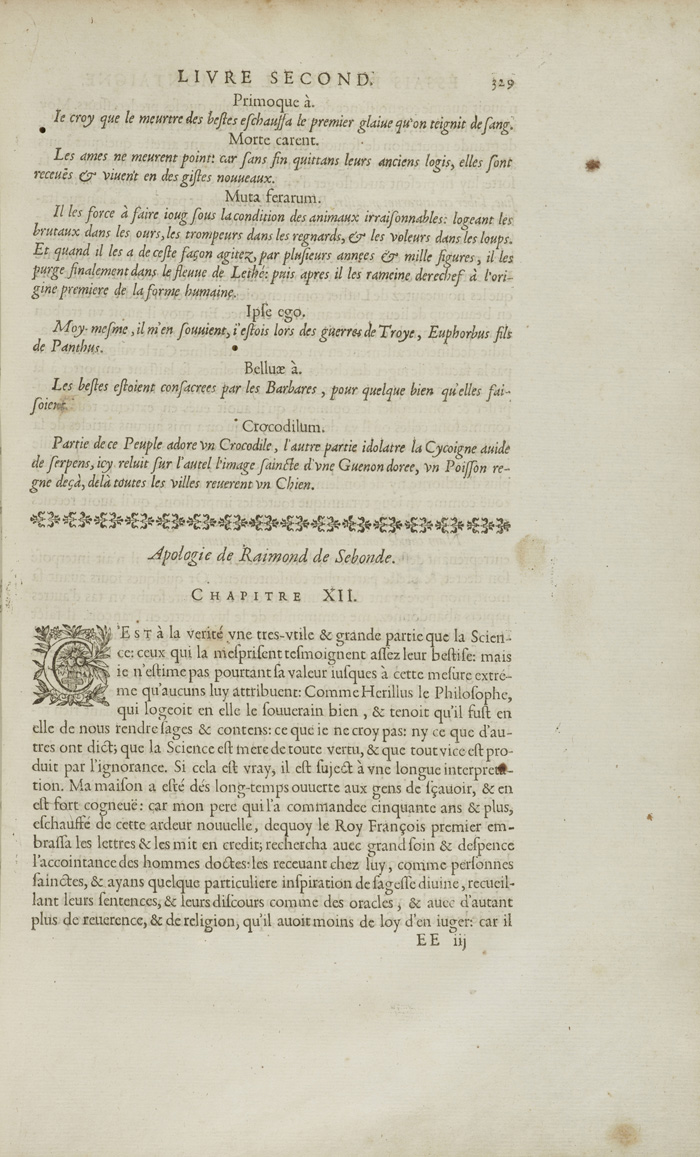 LIVRE SECOND. 329
Primoque à.
Ie croy que le meurtre des bestes eschauffa le premier glaiue qu'on teignit de sang.
Morte carent.
Les ames ne meurent point: car sans fin quittans leurs anciens logis, elles sont
receuës & viuent en des gistes nouueaux.
Muta ferarum.
Il les force à faire ioug sous la condition des animaux irraisonnables: logeant les
brutaux dans les ours, les trompeurs dans les regnards, & les voleurs dans les loups.
Et quand il les a de ceste façon agitez, par plusieurs annees & mille figures, il les
purge finalement dans le fleuue de Lethé: puis apres il les rameine derechef à l'ori-
gine premiere de la forme humaine.
Ipse ego.
Moy-mesme, il m'en souuient, i'estois lors des guerres de Troye, Euphorbus fils
de Panthus.
Belluæ à.
Les bestes estoient consacrees par les Barbares, pour quelque bien qu'elles fai-
soient.
Crocodilum.
Partie de ce Peuple adore vn Crocodile, l'autre partie idolatre la Cycoigne auide
de serpens, icy reluit sur l'autel l'image saincte d'vne Guenon doree, vn Poisson re-
gne deçà, delà toutes les villes reuerent vn Chien.
Apologie de Raimond de Sebonde.
CHAPITRE XII.
C'EST à la verité vne tres-vtile & grande partie que la Scien-
ce: ceux qui la mesprisent tesmoignent assez leur bestise: mais
ie n'estime pas pourtant sa valeur iusques à cette mesure extré-
me qu'aucuns luy attribuent: Comme Herillus le Philosophe,
qui logeoit en elle le souuerain bien, & tenoit qu'il fust en
elle de nous rendre sages & contens: ce que ie ne croy pas: ny ce que d'au-
tres ont dict; que la Science est mere de toute vertu, & que tout vice est pro-
duit par l'ignorance. Si cela est vray, il est suject à vne longue interpreta-
tion. Ma maison a esté dés long-temps ouuerte aux gens de sçauoir, & en
est fort cogneuë: car mon pere qui l'a commandee cinquante ans & plus,
eschauffé de cette ardeur nouuelle, dequoy le Roy François premier em-
brassa les lettres & les mit en credit; rechercha auec grand soin & despence
l'accointance des hommes doctes: les receuant chez luy, comme personnes
sainctes, & ayans quelque particuliere inspiration de sagesse diuine, recueil-
lant leurs sentences, & leurs discours comme des oracles, & auec d'autant
plus de reuerence, & de religion, qu'il auoit moins de loy d'en iuger: car il
EE iij